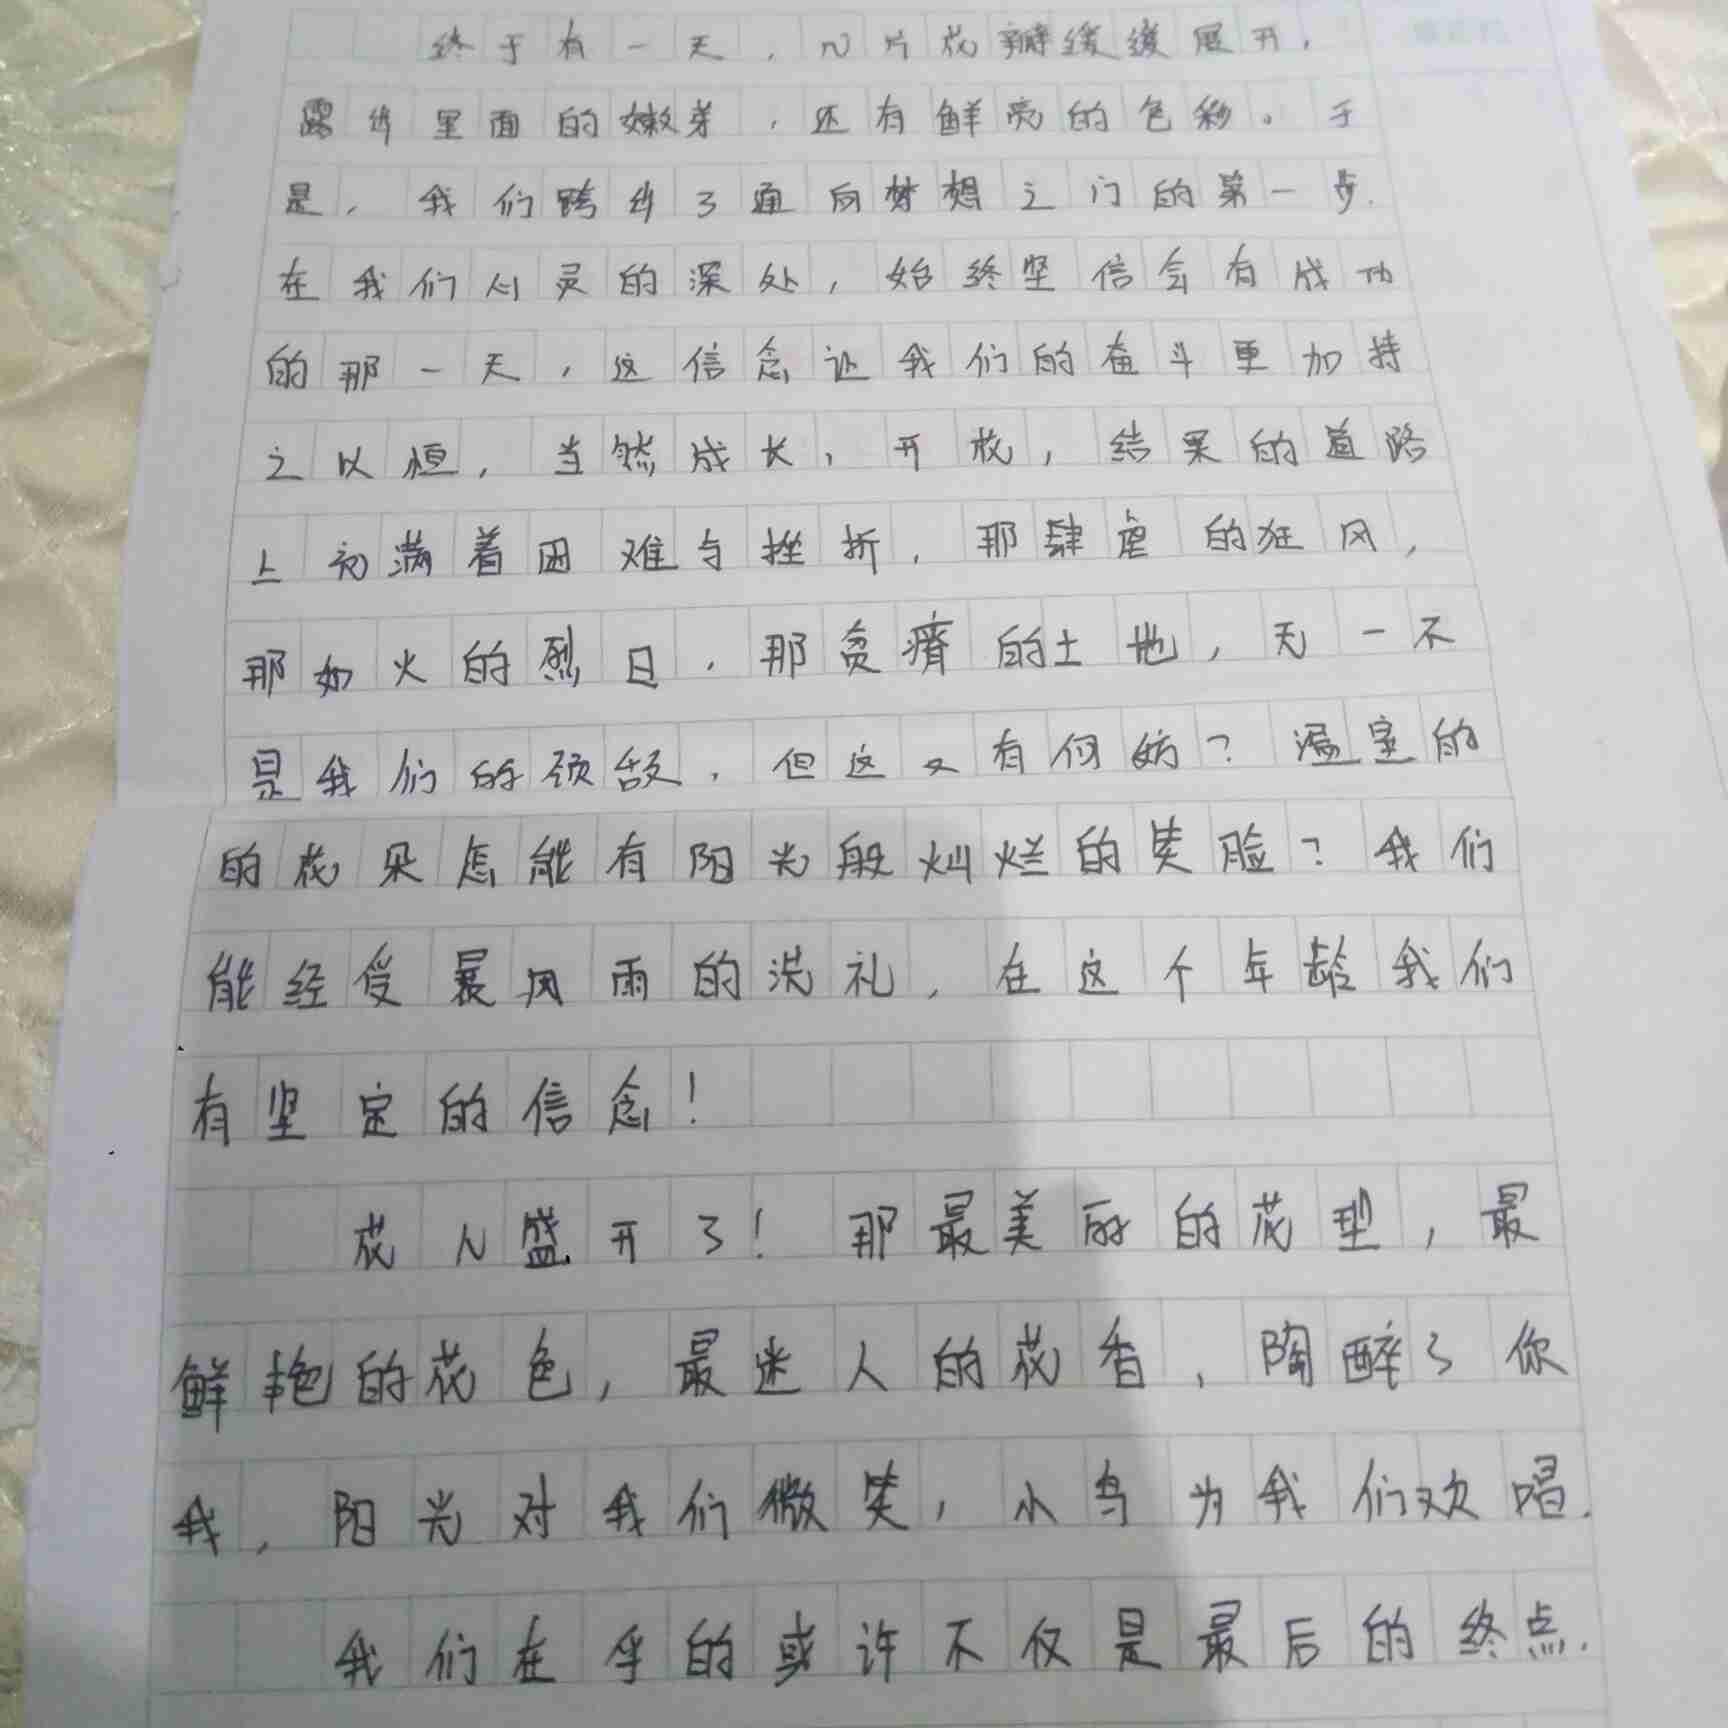 终于有一天，几片花瓣缓缓展开，
露出里面的嫩芽，还有鲜亮的色彩。于
是，我们跨出了通向梦想之门的第一步.
在我们心灵的深处，始终坚信会有成功
的那一天，这信念让我们的奋斗更加持
之以恒，当然成长，开放，结果的道路
上充满着困难与挫折，那肆虐的狂风，
那如火的烈日，那贫瘠的土地，无一不
是我们的颈敌，但这又有何妨？温室的
的花朵怎能有阳光般灿烂的笑脸？我们
能经受暴风雨的洗礼，在这个年龄我们
有坚定的信念！
花儿盛开了！那最美丽的花型，最
鲜艳的花色，最迷人的花香，陶醉了你
我，阳光对我们微笑，小鸟为我们欢唱.
我们在乎的或许不仅是最后的终点.